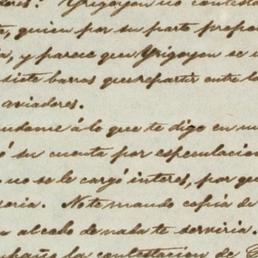 dores. Yrigoyen no contesta
te, quien por su parte prefer
a, y parece que Yrigoyen se
siete barras que repartir entre lo
aviadores.
udame á lo que te digo en mi
ó su cuenta por especulacion
no se le cargó interes, por qu
eria. No te mando copia de
al cabo de nada te serviria.
la contestacion de